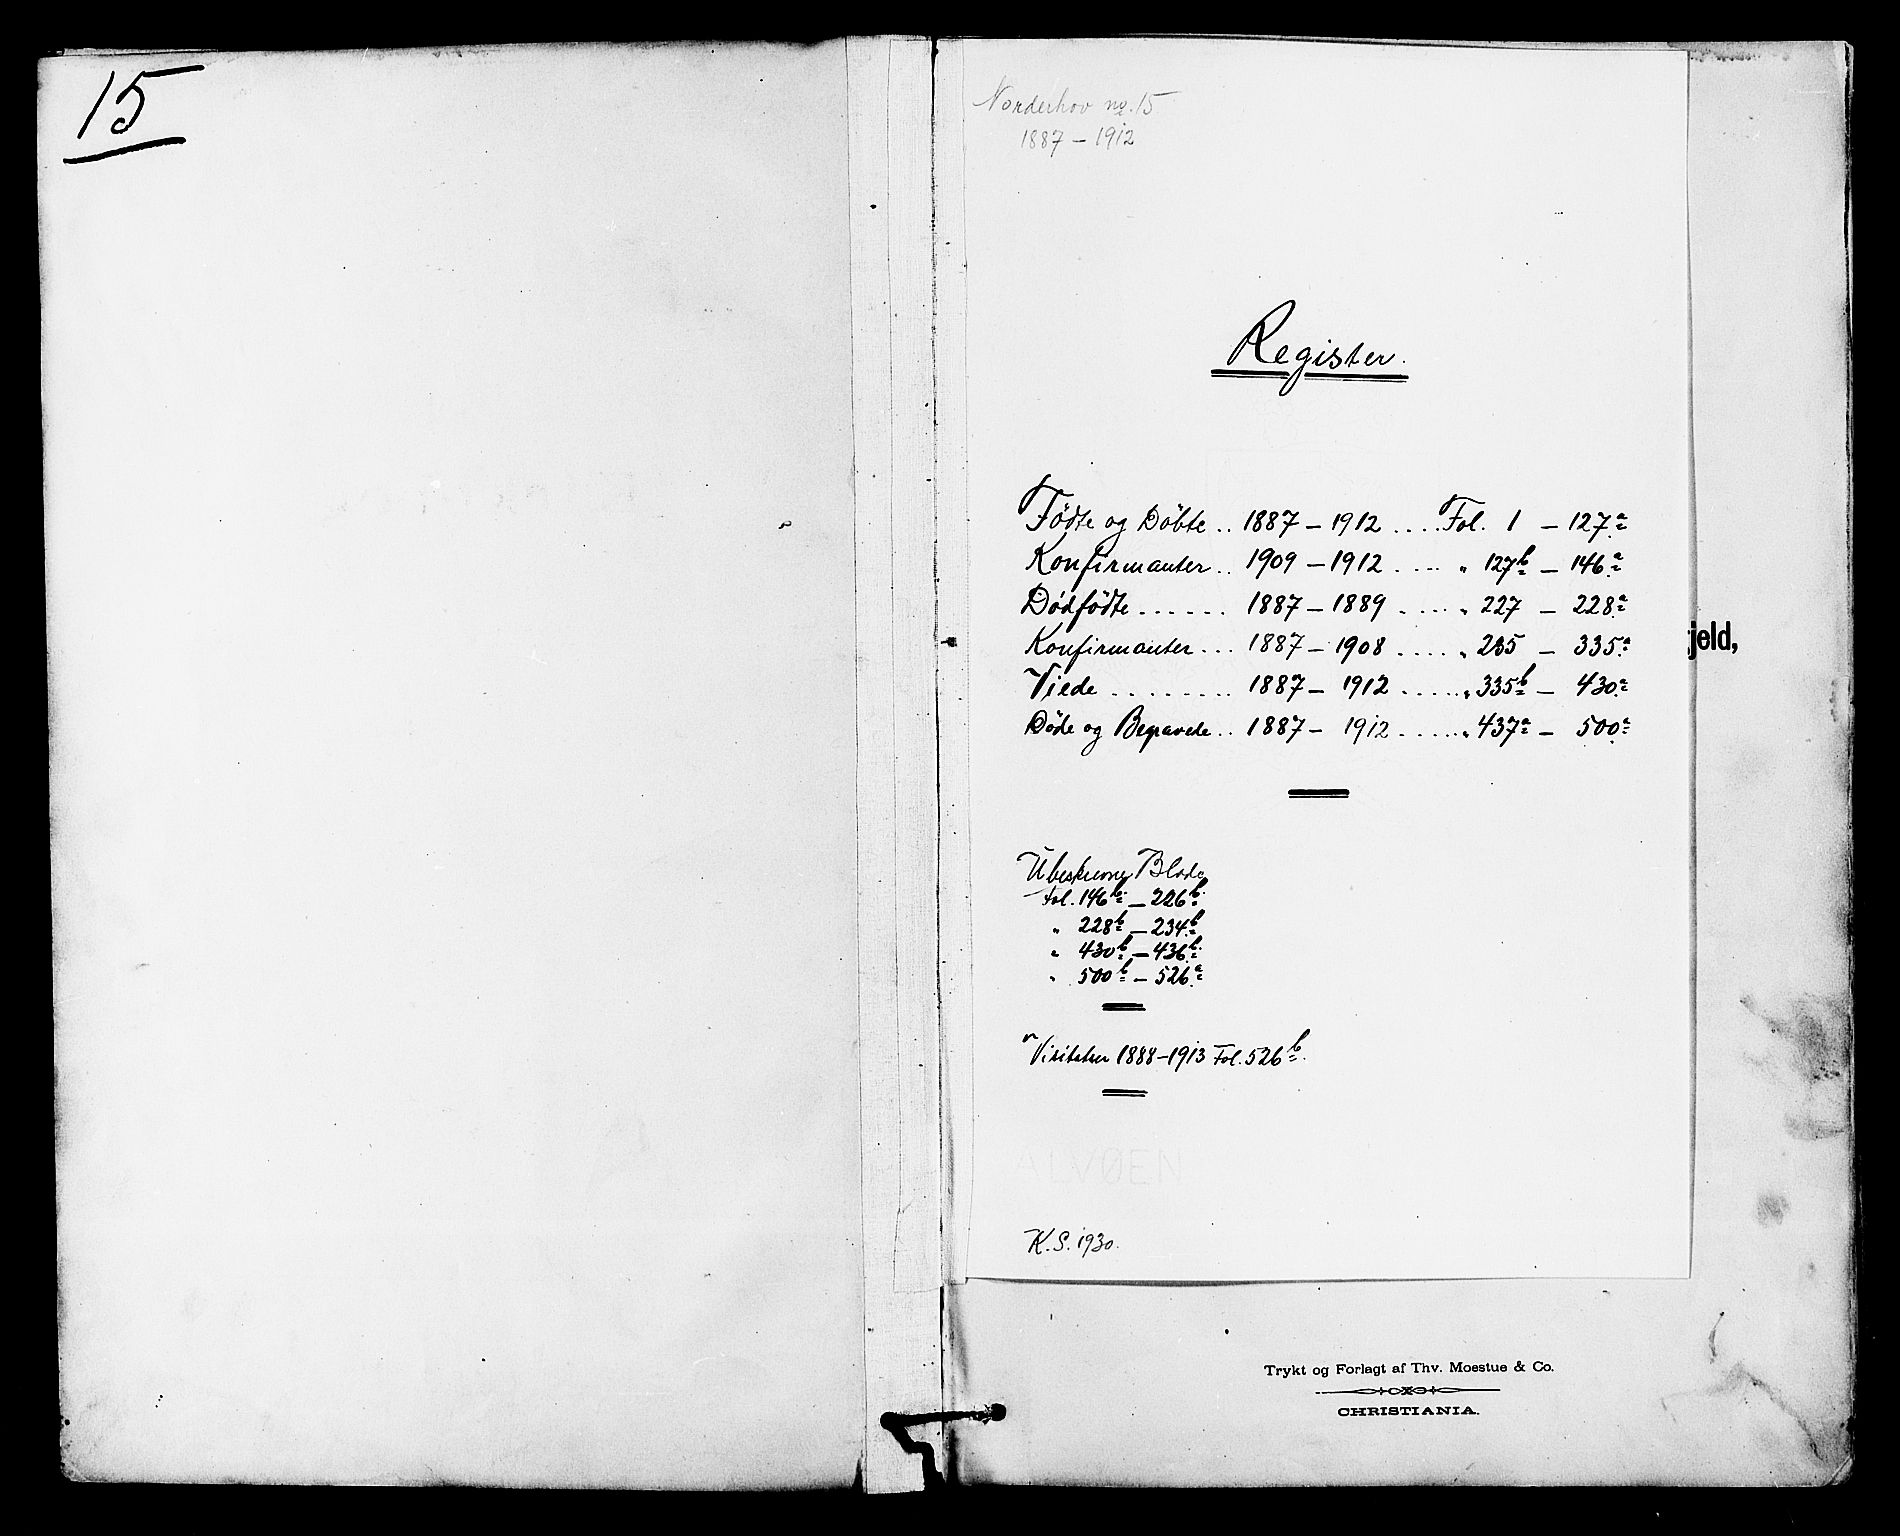 15
Norderhov no. 15
1887 – 1912
Register.
Fødte og Døbte .. 1887 – 1912 .... Fol. 1 – 127a
Konfirmanter .. 1909 – 1912 .... " 127b – 146a
Dødfødte ...... 1887 – 1889 .... " 227 – 228a
Konfirmanter ... 1887 – 1908 .... " 235 – 335a
jeld,
Viede ........ 1887 – 1912 .... " 335b – 430a
Døde og Begravede .. 1887 – 1912 .... " 437a – 500a
Ubeskrevne Blade
Fol. 146b – 226b
" 228b – 234b
" 430b – 436b
" 500b – 526a
Visitatser 1888–1913 Fol. 526b.
ALVØEN
K. S. 1930.
Trykt og Forlagt af Thv. Moestue & Co.
CHRISTIANIA.